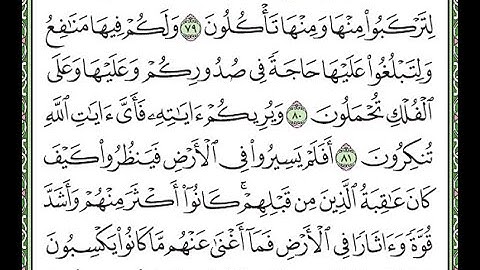 لِتَرْكَبُوا۟ مِنْهَا وَمِنْهَا تَأْكُلُونَ ٧٩ وَلَكُمْ فِيهَا مَنَـٰفِعُ
وَلِتَبْلُغُوا۟ عَلَيْهَا حَاجَةً فِى صُدُورِكُمْ وَعَلَيْهَا وَعَلَى
ٱلْفُلْكِ تُحْمَلُونَ ٨٠ وَيُرِيكُمْ ءَايَـٰتِهِۦ فَأَىَّ ءَايَـٰتِ ٱللَّهِ
تُنكِرُونَ ٨١ أَفَلَمْ يَسِيرُوا۟ فِى ٱلْأَرْضِ فَيَنظُرُوا۟ كَيْفَ
كَانَ عَـٰقِبَةُ ٱلَّذِينَ مِن قَبْلِهِمْ ۚ كَانُوٓا۟ أَكْثَرَ مِنْهُمْ وَأَشَدَّ
قُوَّةً وَءَاثَارًا فِى ٱلْأَرْضِ فَمَآ أَغْنَىٰ عَنْهُم مَّا كَانُوا۟ يَكْسِبُونَ